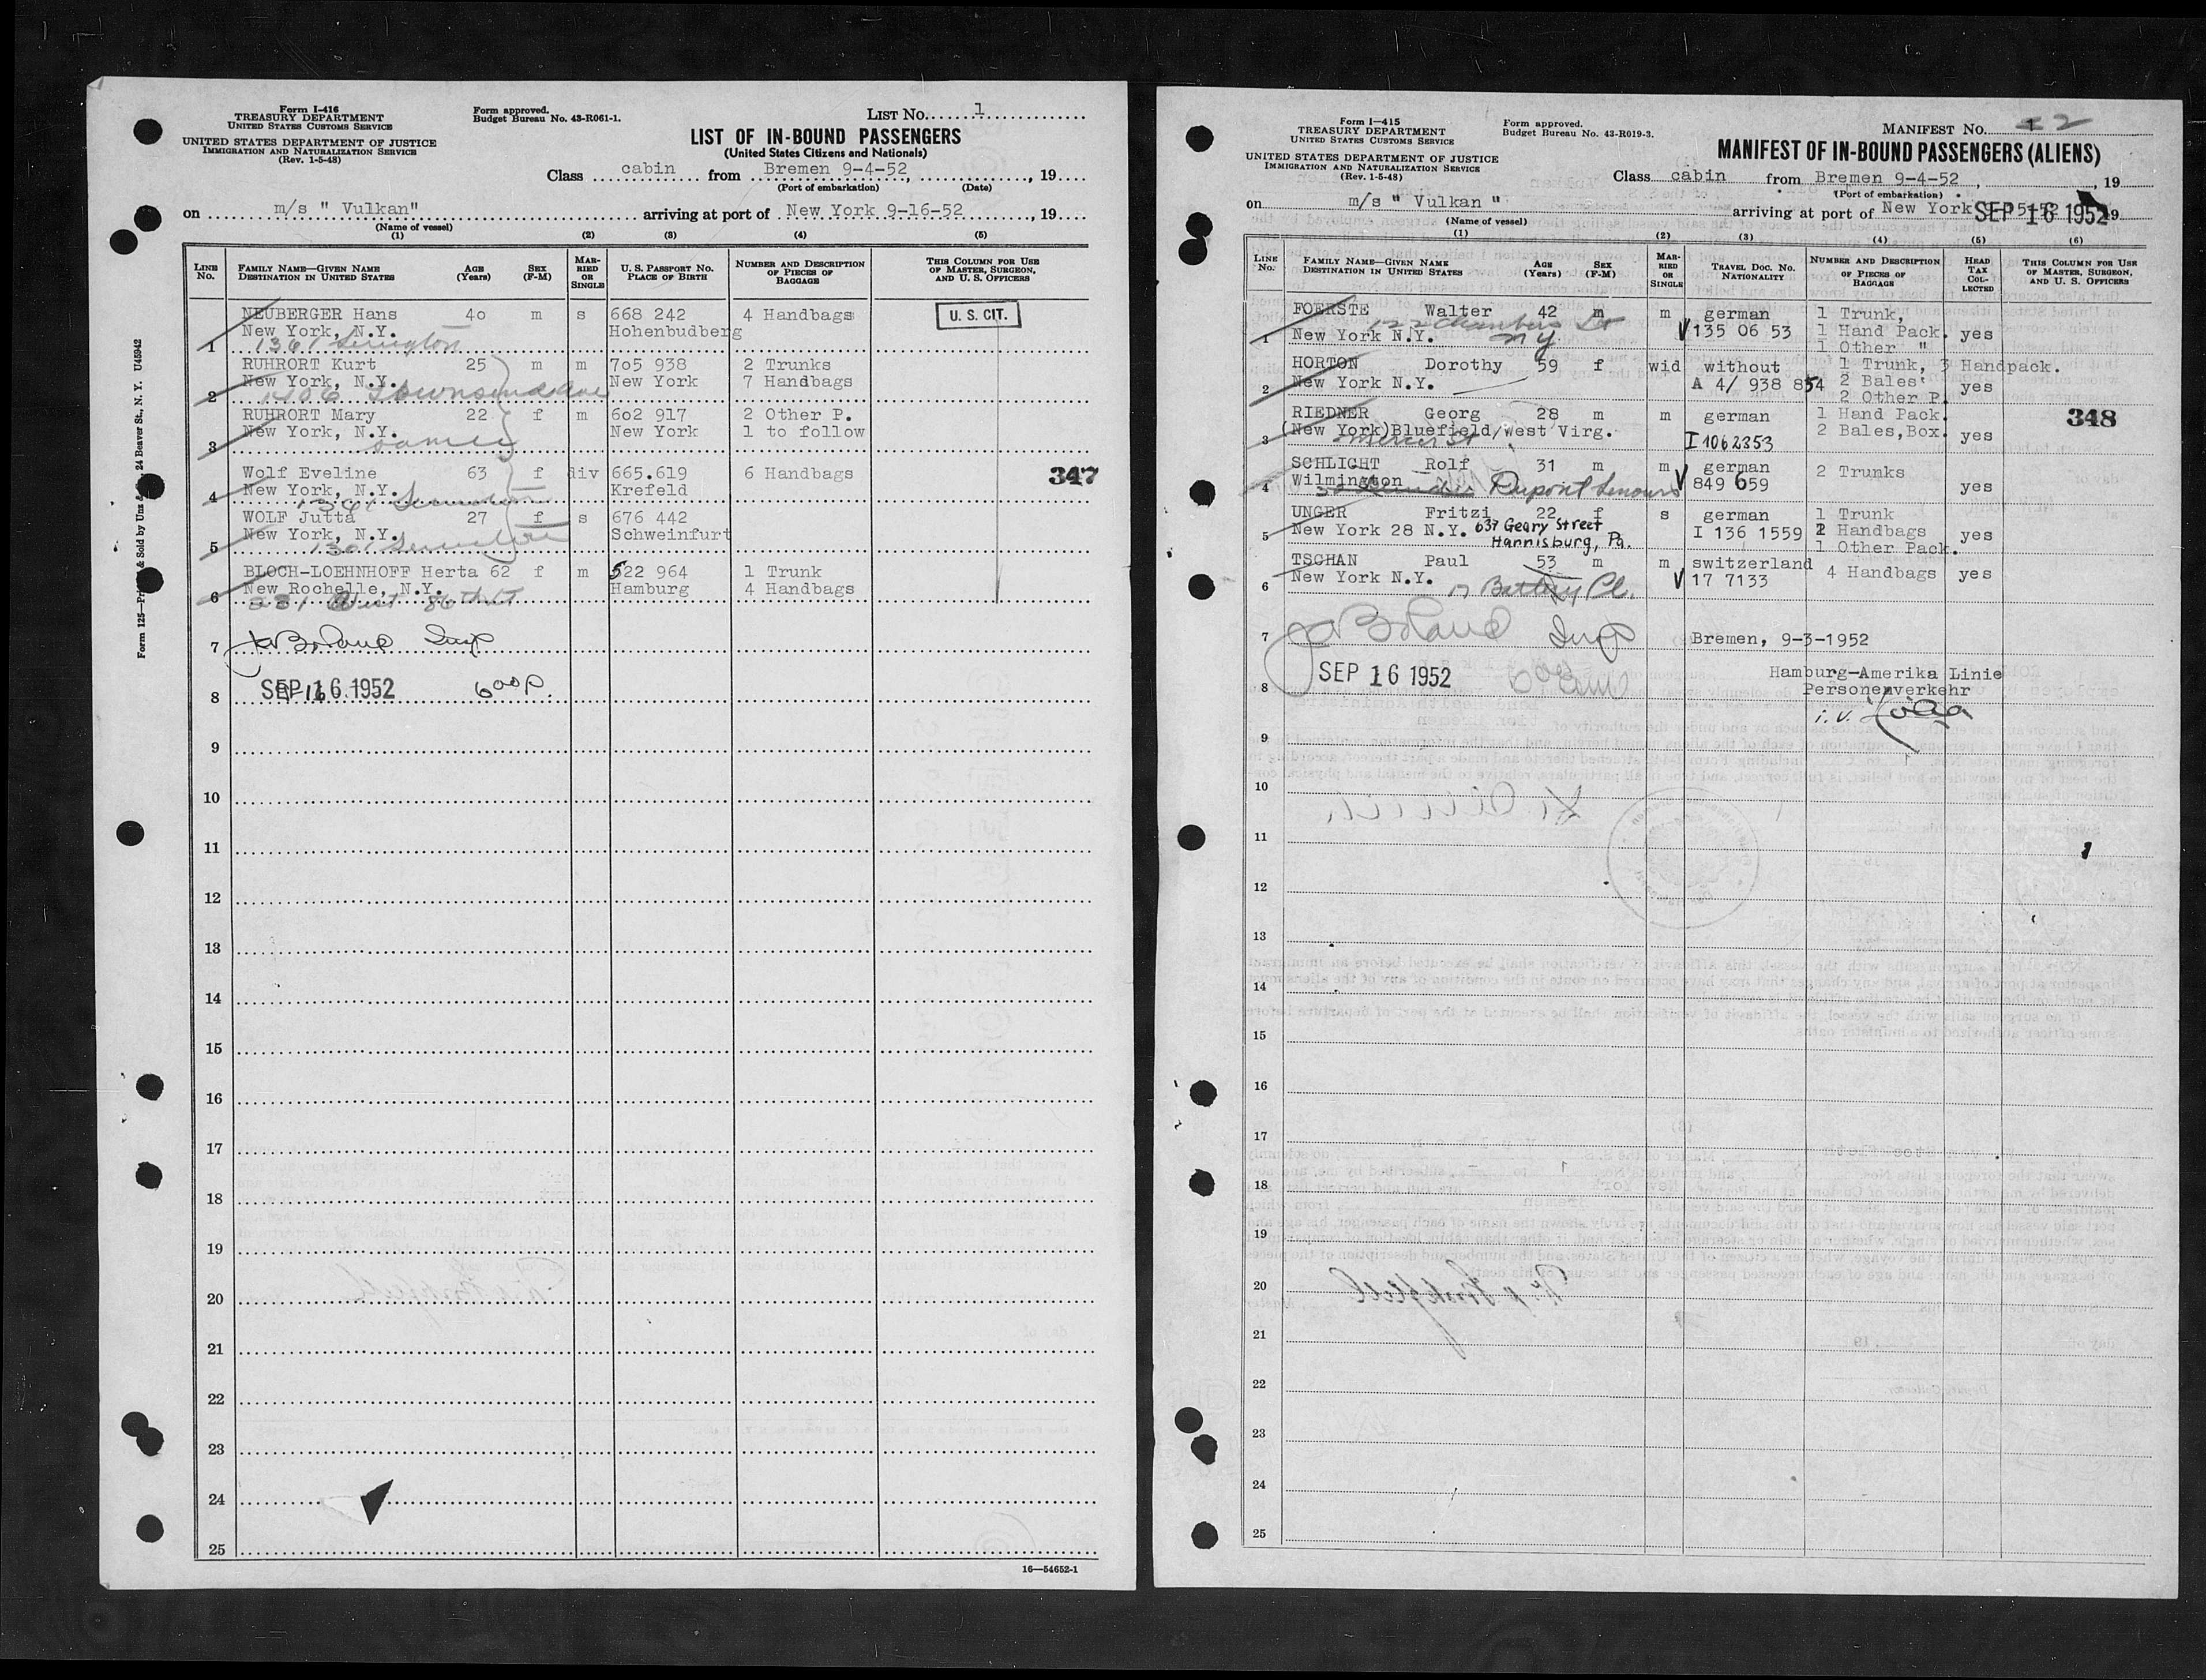 Form I-416
TREASURY DEPARTMENT
UNITED STATES CUSTOMS SERVICE
UNITED STATES DEPARTMENT OF JUSTICE
IMMIGRATION AND NATURALIZATION SERVICE
(Rev. 1-5-48)
Form approved.
Budget Bureau No. 43-R061-1.
LIST No. 1
LIST OF IN-BOUND PASSENGERS
(United States Citizens and Nationals)
Class cabin from Bremen 9-4-52, , 19
(Port of embarkation) (Date)
on m/s " Vulkan" arriving at port of New York 9-16-52, 19
(Name of vessel)
(1) (2) (3) (4) (5)
LINE No. FAMILY NAME—GIVEN NAME DESTINATION IN UNITED STATES AGE (Years) SEX (F-M) MARRIED OR SINGLE U. S. PASSPORT NO. PLACE OF BIRTH NUMBER AND DESCRIPTION OF PIECES OF BAGGAGE THIS COLUMN FOR USE OF MASTER, SURGEON, AND U. S. OFFICERS
NEUBERGER Hans 4o m s 668 242 4 Handbags U. S. CIT.
New York, N.Y. Hohenbudberg
1 1361
RUHRORT Kurt 25 m m 7o5 938 2 Trunks
New York, N.Y. New York 7 Handbags
2 1406 Townsend Ave
RUHRORT Mary 22 f m 6o2 917 2 Other P.
New York, N.Y. New York 1 to follow
3 same
Wolf Eveline 63 f div 665.619 6 Handbags 347
New York, N.Y. Krefeld
4 1361
WOLF Jutta 27 f s 676 442
New York, N.Y. Schweinfurt
5 1361
BLOCH-LOEHNHOFF Herta 62 f m 522 964 1 Trunk
New Rochelle, N.Y. Hamburg 4 Handbags
6 West 86th St
7 Boland Insp
8 SEP 16 1952 6 00 P.
9
10
11
12
13
14
15
16
17
18
19
20
21
22
23
24
25
16—54652-1
24 Beaver St., N. Y. U45942
Form I—415
TREASURY DEPARTMENT
UNITED STATES CUSTOMS SERVICE
UNITED STATES DEPARTMENT OF JUSTICE
IMMIGRATION AND NATURALIZATION SERVICE
(Rev. 1-5-48)
Form approved.
Budget Bureau No. 43-R019-3.
MANIFEST No. 2
MANIFEST OF IN-BOUND PASSENGERS (ALIENS)
Class cabin from Bremen 9-4-52 , , 19
(Port of embarkation)
on m/s " Vulkan " arriving at port of New York SEP 16 1952 19
(Name of vessel)
(1) (2) (3) (4) (5) (6)
LINE No. FAMILY NAME—GIVEN NAME DESTINATION IN UNITED STATES AGE (Years) SEX (F-M) MARRIED OR SINGLE TRAVEL DOC. NO. NATIONALITY NUMBER AND DESCRIPTION OF PIECES OF BAGGAGE HEAD TAX COLLECTED THIS COLUMN FOR USE OF MASTER, SURGEON, AND U. S. OFFICERS
FOERSTE Walter 42 m m german 1 Trunk,
122 Chambers St
1 New York N.Y. NY 135 06 53 1 Hand Pack. yes
1 Other "
HORTON Dorothy 59 f wid without 1 Trunk, 3 Handpack.
2 New York N.Y. A 4/ 938 854 2 Bales yes
2 Other P.
RIEDNER Georg 28 m m german 1 Hand Pack. 348
3 (New York)Bluefield/West Virg. I 1062353 2 Bales,Box. yes
Mercer St
SCHLICHT Rolf 31 m m german 2 Trunks
4 Wilmington Dupont 849 659 yes
UNGER Fritzi 22 f s german 1 Trunk
5 New York 28 N.Y. 637 Geary Street I 136 1559 2 Handbags yes
Harrisburg, Pa. 1 Other Pack.
TSCHAN Paul 53 m m switzerland
6 New York N.Y. 17 7133 4 Handbags yes
17 Battery Pl.
7 Boland Insp Bremen, 9-3-1952
SEP 16 1952
8 Hamburg-Amerika Linie
Personenverkehr
i.V.
9
10
11
12
13
14
15
16
17
18
19
20
21
22
23
24
25